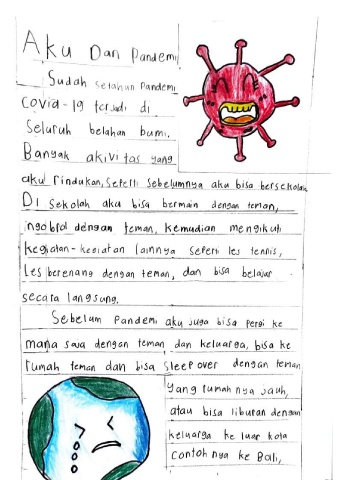 Aku Dan Pandemi
Sudah setahun Pandemi
Covid-19 terjadi di
Seluruh belahan bumi.
Banyak akivitas yang
aku rindukan, seperti sebelumnya aku bisa bersekolah
Di sekolah aku bisa bermain dengan teman,
ngobrol dengan teman, kemudian mengikuti
kegiatan-kegiatan lainnya seperti les tennis,
Les berenang dengan teman, dan bisa belajar
secara langsung.
Sebelum Pandemi aku juga bisa pergi ke
mana saja dengan teman dan keluarga, bisa ke
rumah teman dan bisa sleep over dengan teman
yang rumah nya jauh,
atau bisa liburan dengan
keluarga ke luar kota
contoh nya ke Bali,